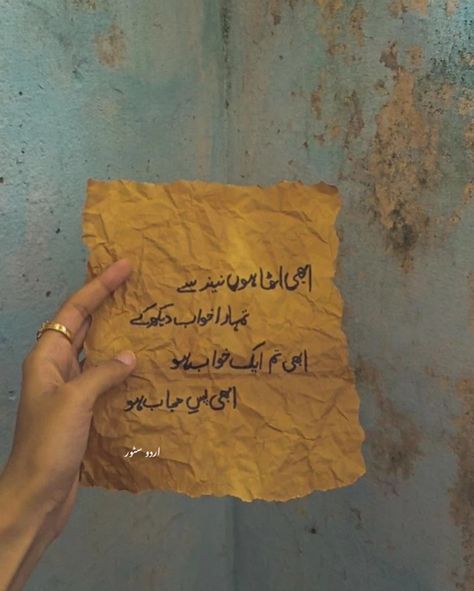 ابھی اٹھا ہوں نیند سے
تمہارا خواب دیکھ کے
ابھی تم ایک خواب ہو
ابھی پسِ حجاب ہو
اردو سٹور